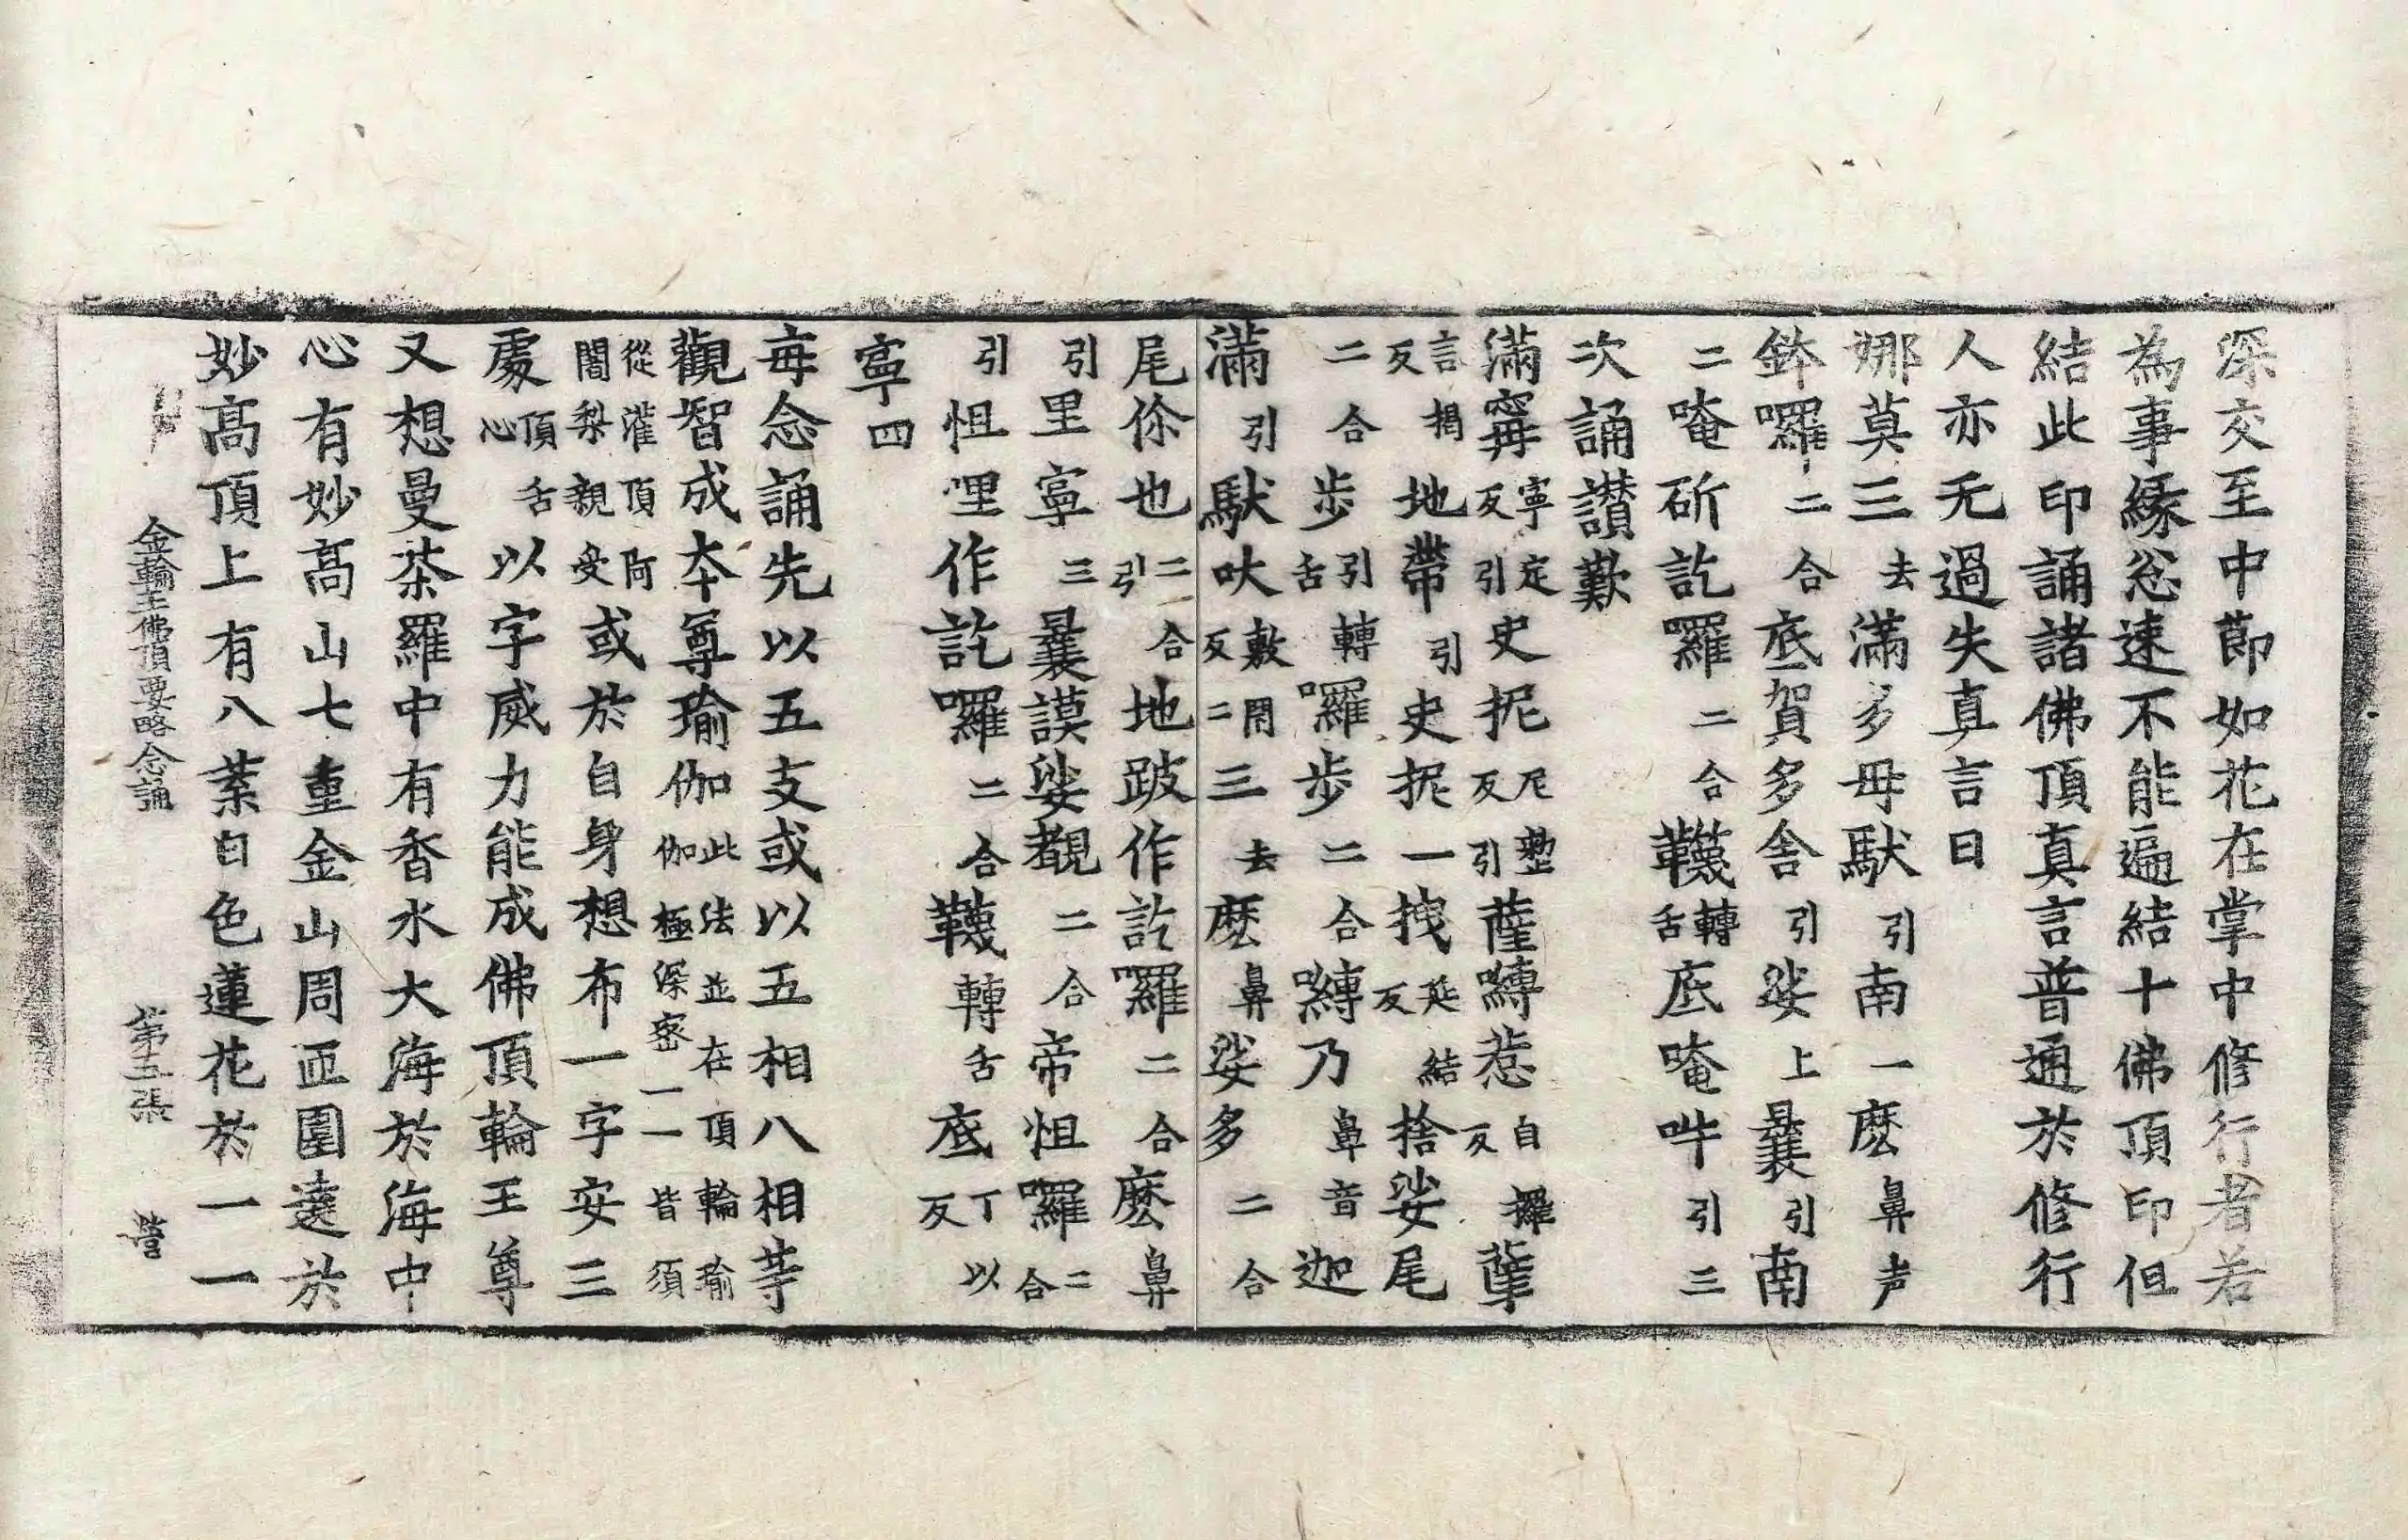 深交至中節如花在掌中修行者若
為事緣忩速不能遍結十佛頂印但
結此印誦諸佛頂真言普通於修行
人亦无過失真言曰
娜莫三去滿多母馱引南一麽鼻声
鉢囉二合底賀多舍引娑上曩引南
二唵斫訖羅二合韈轉舌底唵吽引三
次誦讃歎
滿寗寧定反引史抳尼整反引薩嚩惹自攞反肈
言揭反地帶引史抳一拽延結反捨娑尾
二合步引轉舌囉步二合嚩乃鼻音迦
滿引馱吠敷罔反二三去麽鼻娑多二合
尾你也二合引地跛作訖囉二合麽鼻
引里寧三曩謨娑覩二合帝怛囉二合
引怛哩作訖囉二合韈轉舌底丁以反
寧四
每念誦先以五支或以五相八相等
觀智成本尊瑜伽此法並在頂輪瑜伽極深密一一皆須
從灌頂阿闍梨親受或於自身想布一字安三
處頂舌心以字威力能成佛頂輪王尊
又想曼荼羅中有香水大海於海中
心有妙高山七重金山周匝圍遶於
妙高頂上有八葉白色蓮花於一一
金輪王佛頂要略念誦 第五張 營